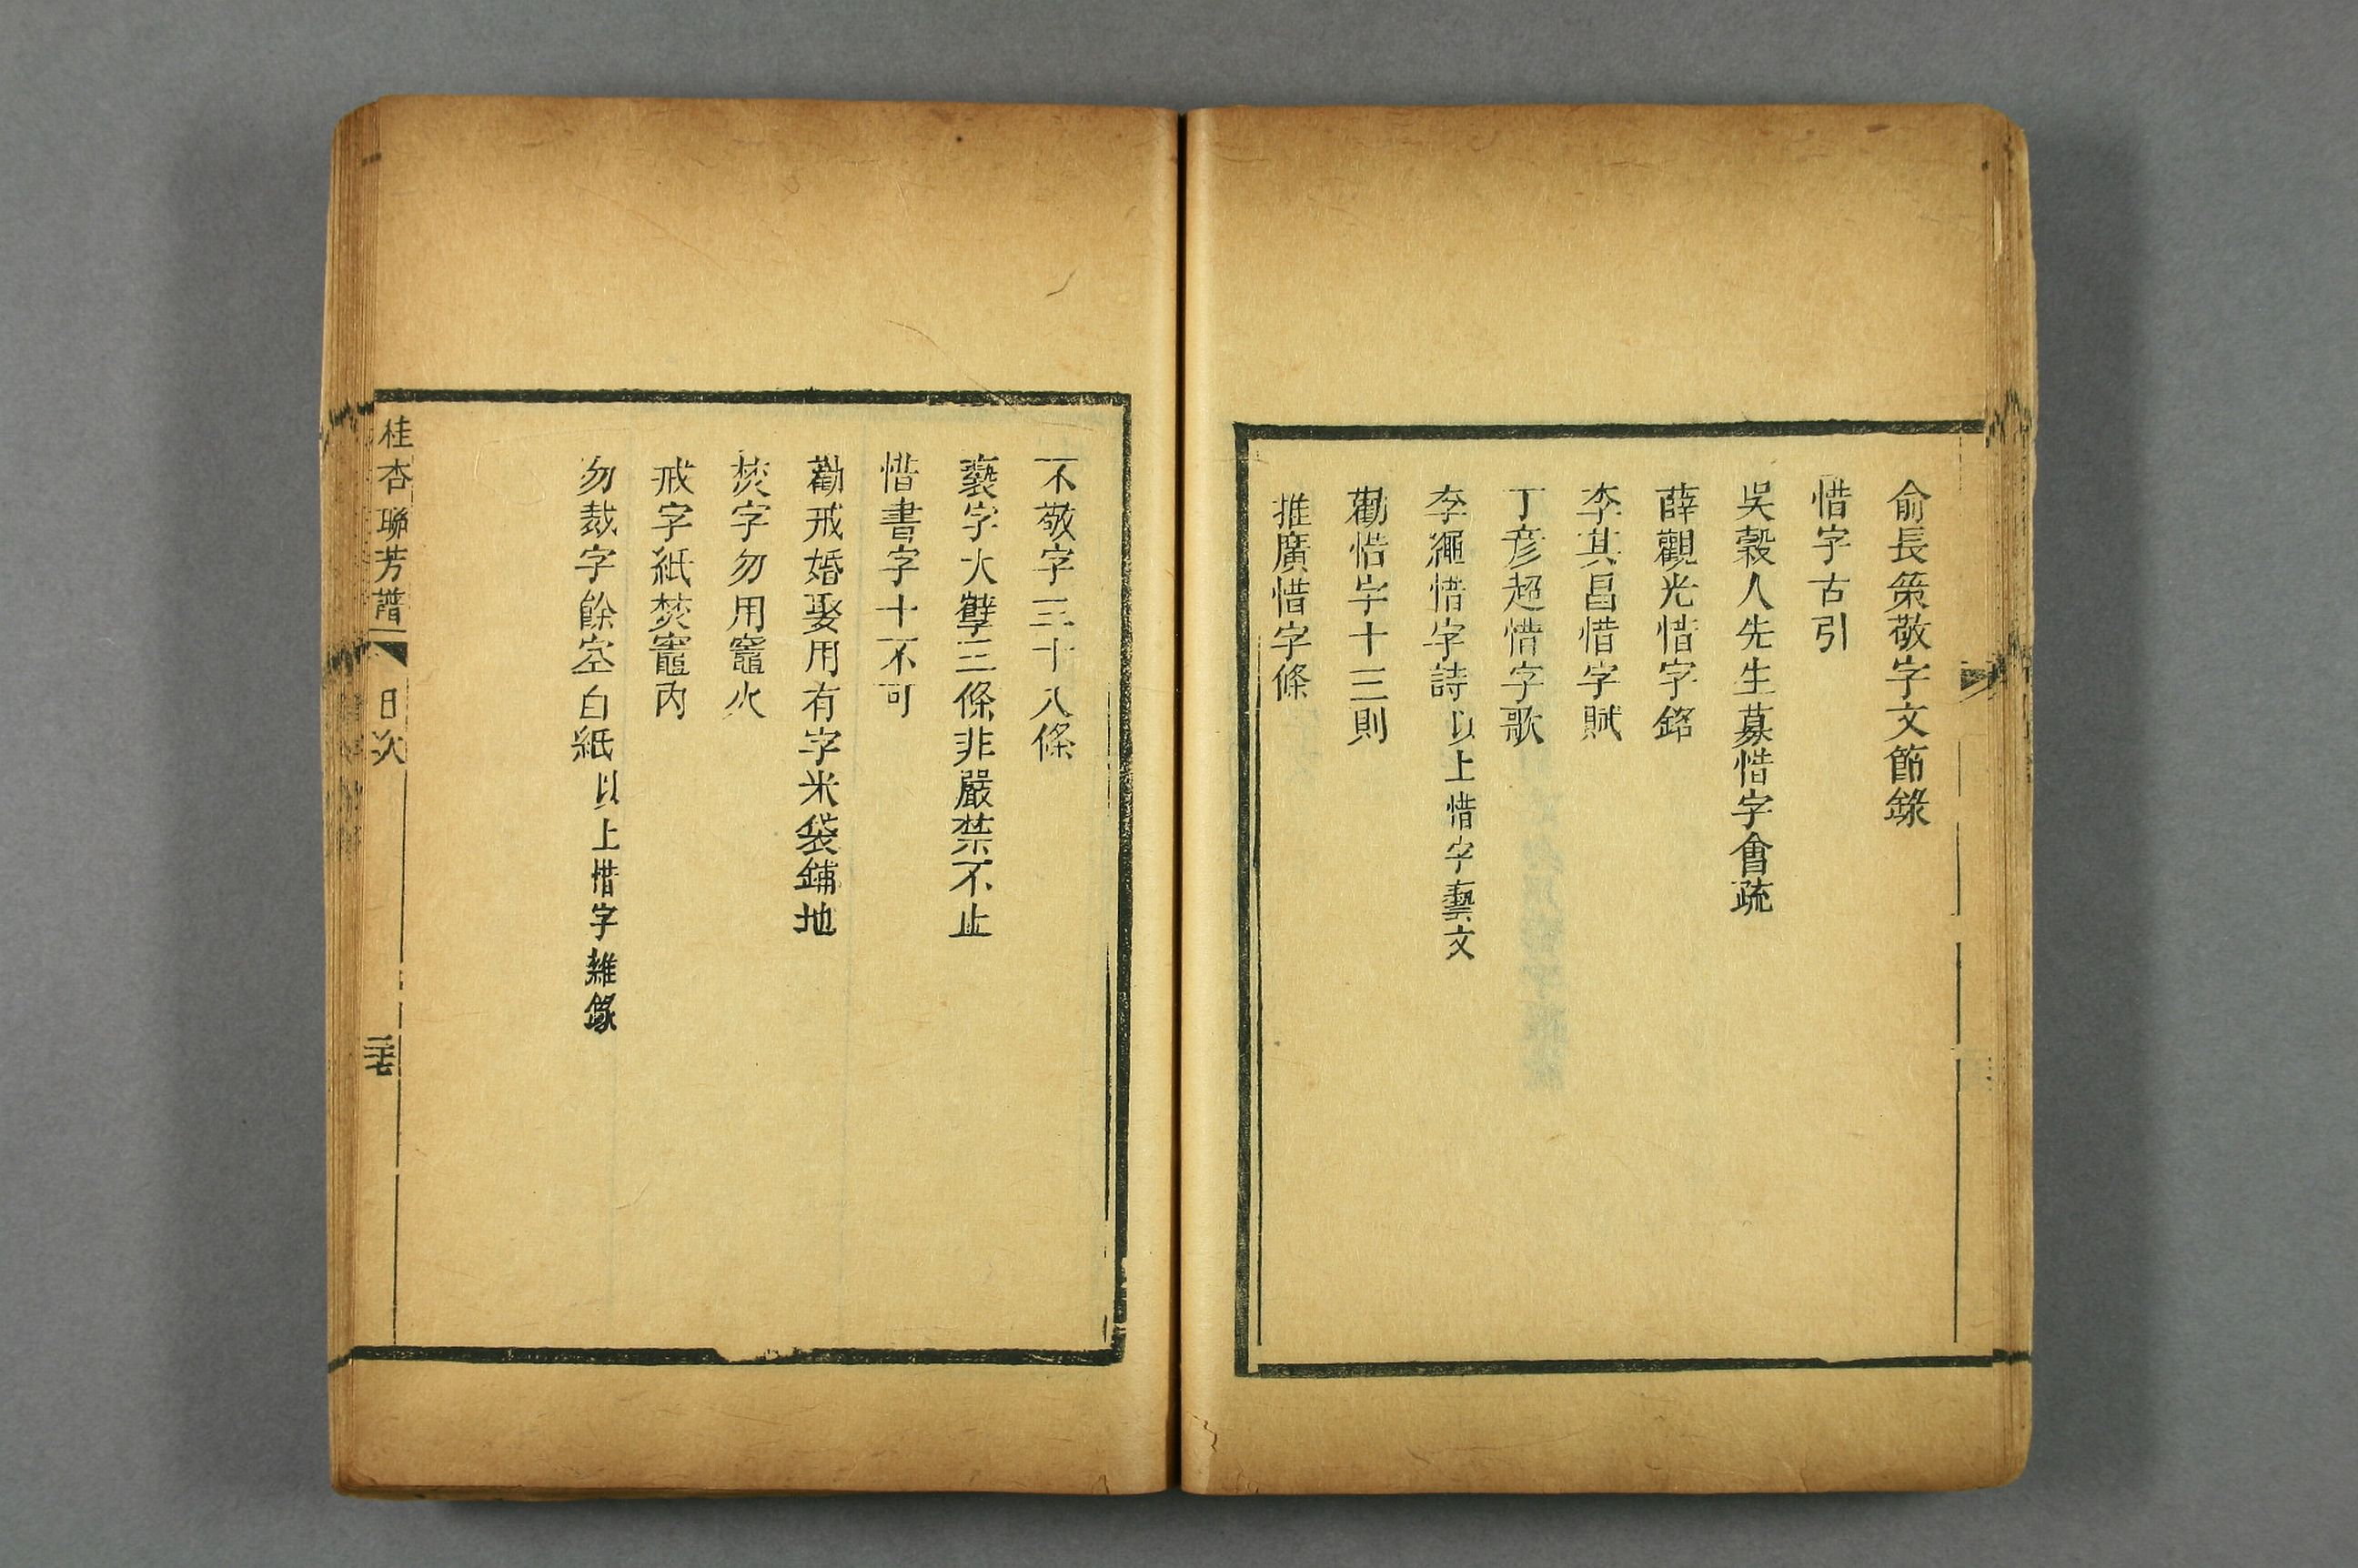 俞長策敬字文節錄
惜字古引
吳穀人先生募惜字會疏
薛觀光惜字銘
李其昌惜字賦
丁彥超惜字歌
李繩惜字詩以上惜字藝文
勸惜字十三則
推廣惜字條
不敬字三十八條
褻字大孽三條非嚴禁不止
惜書字十不可
勸戒婚娶用有字米袋鋪地
焚字勿用竈火
戒字紙焚竈內
勿裁字餘空白紙以上惜字雜錄
桂杏聯芳譜 目次 三十七